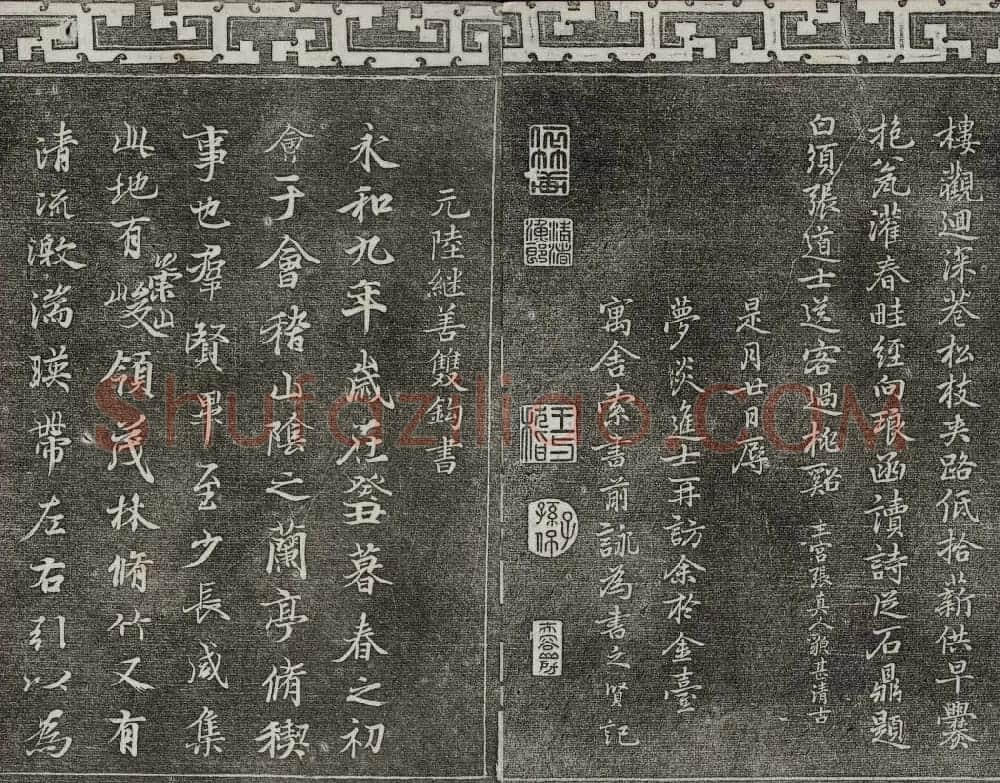 樓觀迴深巷松枝夾路低拾薪供早爨
抱瓮灌春畦經向琅函讀詩從石鼎題
白須張道士送客過桃谿 主宮張真人貌甚清古
是月廿日辱
夢淡進士再訪余於金臺
寓舍索書前詠為書之賢記
元陸繼善雙鈎書
永和九年歲在癸丑暮春之初
會于會稽山陰之蘭亭脩稧
事也羣賢畢至少長咸集
此地有崇山峻領茂林脩竹又有
清流激湍暎帶左右引以為
Shufaziliao.COM